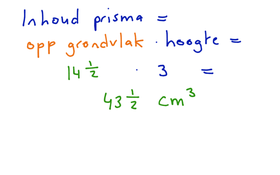 Inhoud prisma =
opp grondvlak · hoogte =
14 ½ · 3 =
43 ½ cm³